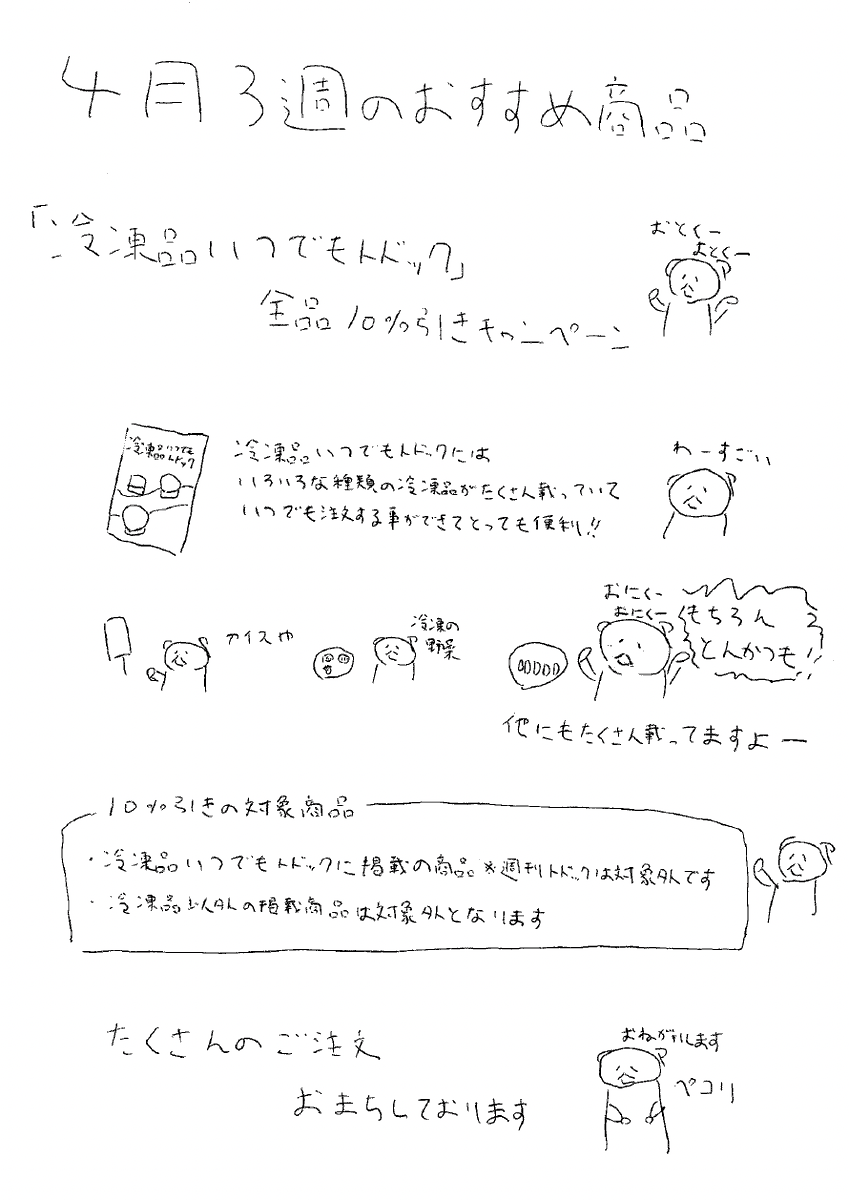 4月3週のおすすめ商品
「冷凍品いつでもトドック」
おとくー
おとくー
全品10%引きキャンペーン
冷凍品いつでも
トドック
冷凍品いつでもトドックには
いろいろな種類の冷凍品がたくさん載っていて
いつでも注文する事ができてとっても便利!!
わーすごい
アイスや
冷凍の
野菜
おにくー
おにくー
もちろん
とんかつも!!
他にもたくさん載ってますよー
10%引きの対象商品
・冷凍品いつでもトドックに掲載の商品※週刊トドックは対象外です
・冷凍品以外の掲載商品は対象外となります
たくさんのご注文
おまちしております
おねがいします
ペコリ